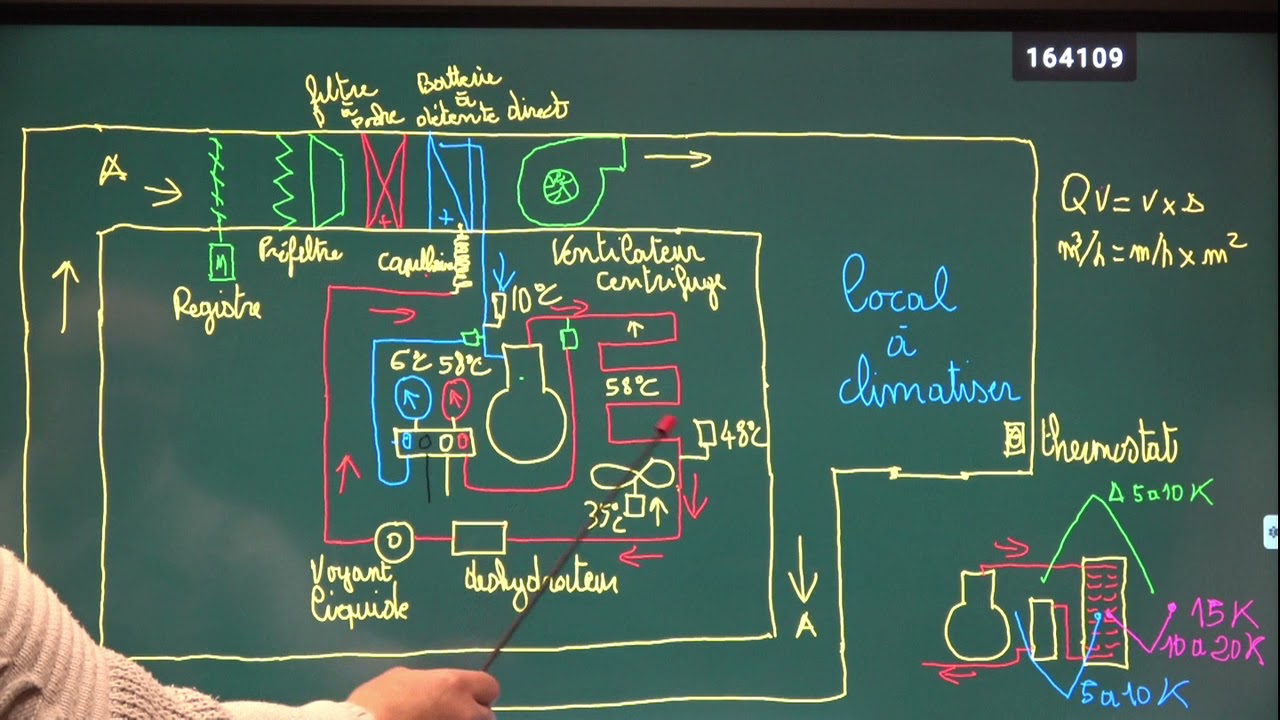 164109
filtre
à
poche
Batterie
à
détente direct
A
Préfiltre
capillaire
Ventilateur
centrifuge
M
Registre
QV = V x S
m³/h = m/h x m²
10°C
6°C 58°C
58°C
48°C
35°C
local
à
climatiser
thermostat
Voyant
liquide
deshydrateur
A
Δ 5 à 10 K
15K
10 à 20K
5 à 10 K